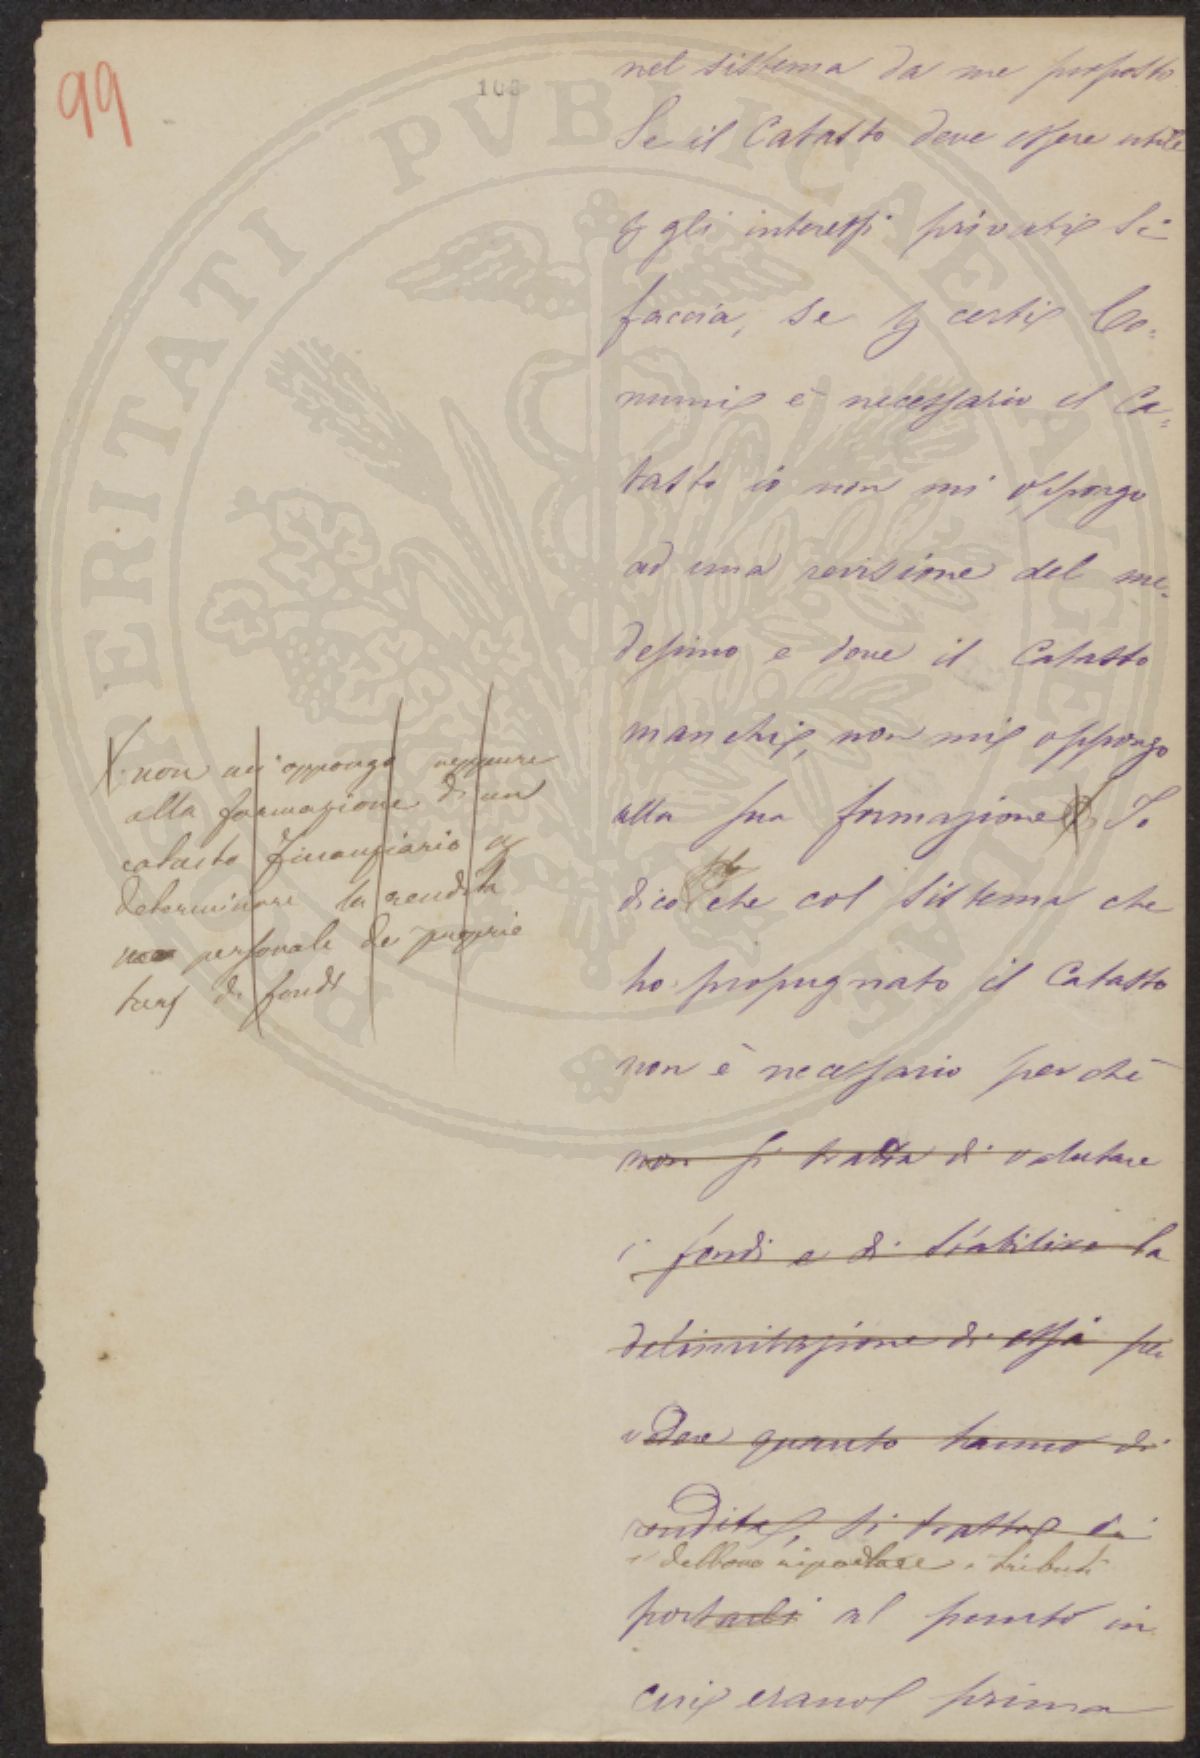 99
103
nel sistema da me proposto
Se il Catasto deve essere utile
p gli interessi privati si
faccia, se p certi Co=
muni è necessario il Ca=
tasto io non mi oppongo
ad una revisione del me=
desimo e dove il Catasto
manchi, non mi oppongo
alla sua formazione Io
dico che col sistema che
ho propugnato il Catasto
non è necessario perchè
non si tratta di valutare
i fondi e di stabilire la
delimitazione di essi per
vedere quanto hanno di
rendita, si tratta di
si debbono riportare i tributi
portarli al punto in
cui erano prima
non mi oppongo neppure
alla formazione di un
catasto finanziario p
determinare la rendita
non personale dei proprie
tari di fondi
PERITATI PVBLICAE AVGENDAE